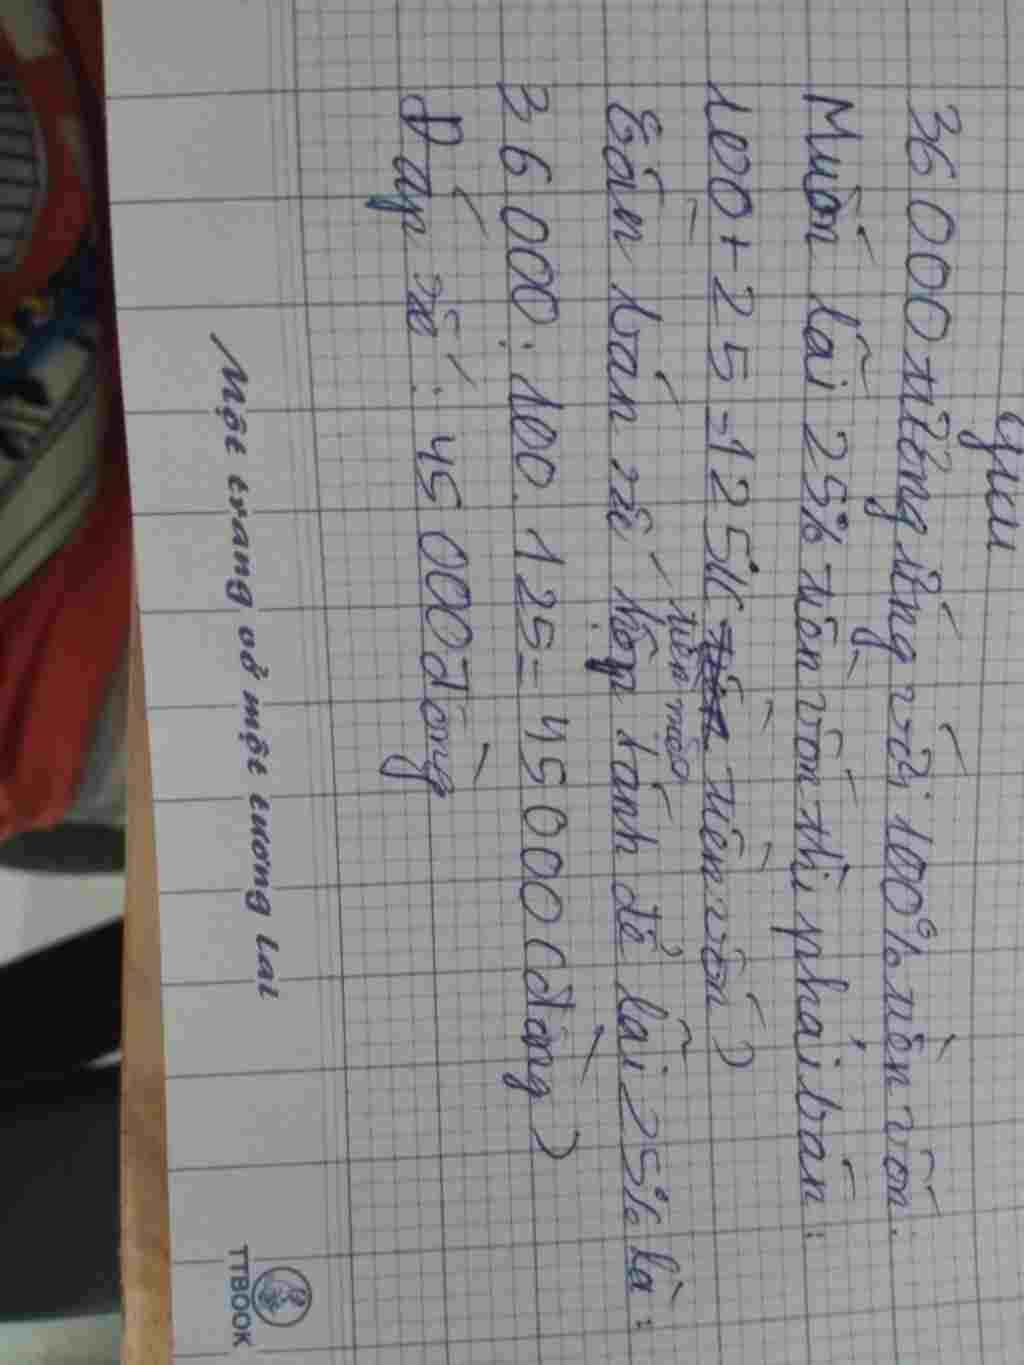 giải
36 000 đồng ứng với 100% tiền vốn.
Muốn lãi 25% tiền vốn thì phải bán:
100 + 25 = 125% tiền vốn)
Cần bán số hộp bánh để lãi 25% là:
tiền
36 000 : 100 . 125 = 45 000 (đồng)
Đáp số : 45 000 đồng
Một trang vở một tương lai
TTBOOK